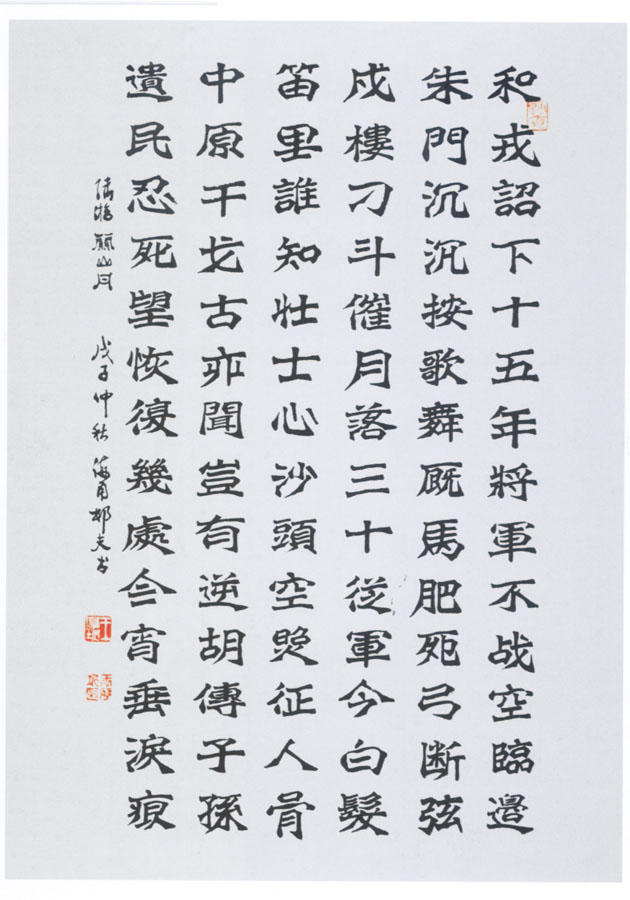 和戎詔下十五年將軍不战空臨邊
朱門沉沉按歌舞厩馬肥死弓断弦
戍樓刁斗催月落三十從軍今白髮
笛里誰知壮士心沙頭空照征人骨
中原干戈古亦聞豈有逆胡傳子孫
遺民忍死望恢復幾處今宵垂淚痕
陸游關山月 戊子仲秋 海角邨夫书